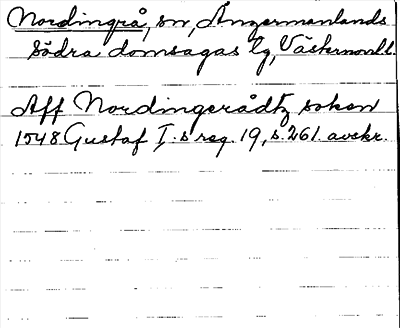 Nordingrå, sn, Ångermanlands
Södra domsagas tg, Västernorrl.
Aff Nordingerådtz soken
1548 Gustaf I.s reg. 19, s. 261. avskr.